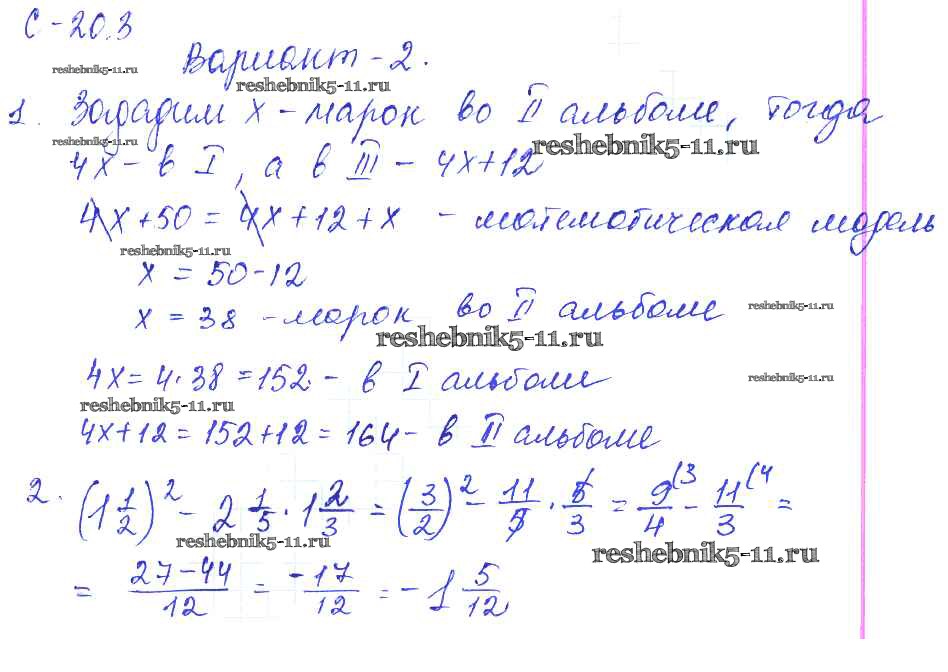 С-20.3
reshebnik5-11.ru
Вариант-2.
reshebnik5-11.ru
1. Зададим x - марок во II альбоме, тогда
reshebnik5-11.ru
reshebnik5-11.ru
4x - в I, а в III - 4x+12
4x+50 = 4x+12+x - математическая модель
reshebnik5-11.ru
x = 50-12
x = 38 - марок во II альбоме
reshebnik5-11.ru
reshebnik5-11.ru
4x = 4·38 = 152. - в I альбоме
reshebnik5-11.ru
reshebnik5-11.ru
4x+12 = 152+12 = 164 - в II альбоме
2. (1 1/2)² - 2 1/5 · 1 2/3 = (3/2)² - 11/5 · 5/3 = 9/4 (3 - 11/3 (4 =
reshebnik5-11.ru
reshebnik5-11.ru
= 27-44/12 = -17/12 = -1 5/12